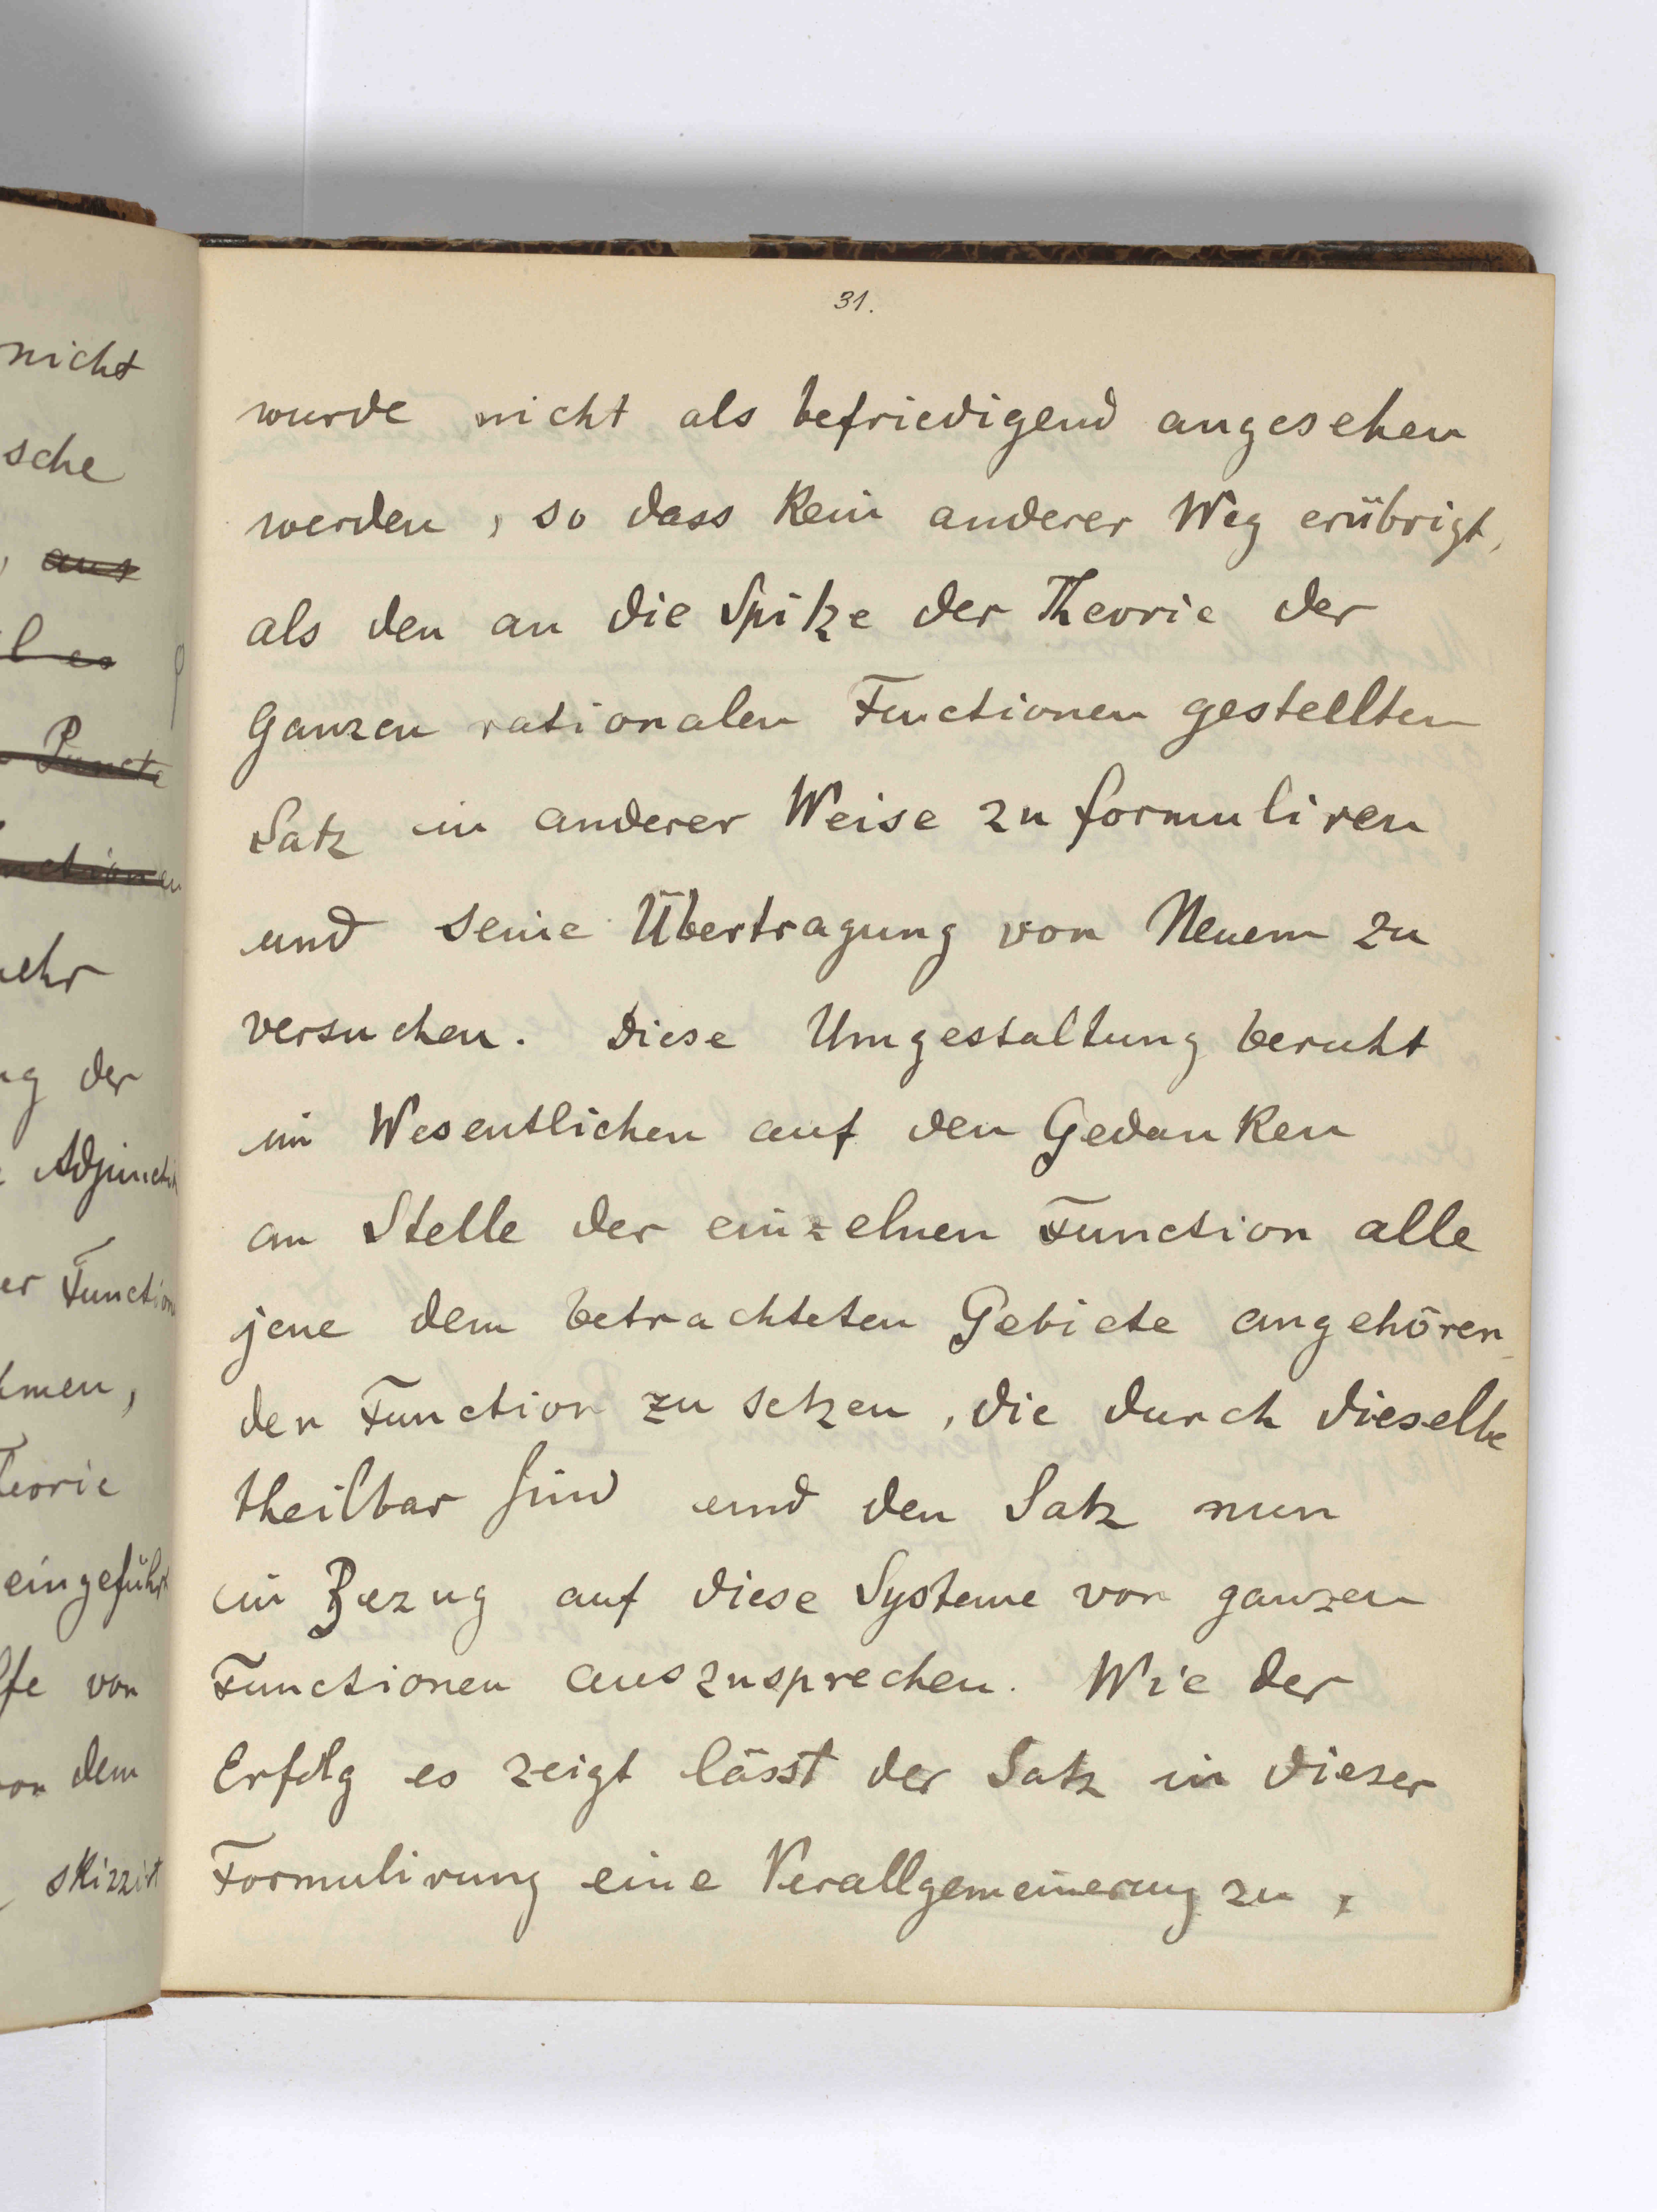 31.
wurde nicht als befriedigend angesehen
werden, so dass kein anderer Weg erübrigt,
als den an die Spitze der Theorie der
Ganzen rationalen Functionen gestellten
Satz in anderer Weise zu formuliren
und seine Übertragung von Neuem zu
versuchen. Diese Umgestaltung beruht
im Wesentlichen auf den Gedanken
an Stelle der einzelnen Function alle
jene dem betrachteten Gebiete angehören-
den Function zu setzen, die durch dieselbe
theilbar sind und den Satz nun
in Bezug auf diese Systeme von ganzen
Functionen auszusprechen. Wie der
Erfolg es zeigt lässt der Satz in dieser
Formulirung eine Verallgemeinerung zu,
nicht
sche
aus
Puncte
der
Function
eingeführt
von
dem
skizzirt